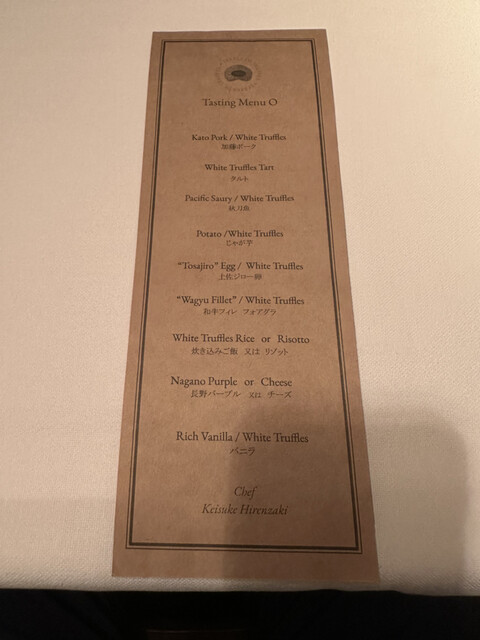 Tasting Menu O
Kato Pork / White Truffles
加藤ポーク
White Truffles Tart
タルト
Pacific Saury / White Truffles
秋刀魚
Potato /White Truffles
じゃが芋
“Tosajiro” Egg / White Truffles
土佐ジロー卵
“Wagyu Fillet” / White Truffles
和牛フィレ フォアグラ
White Truffles Rice or Risotto
炊き込みご飯 又は リゾット
Nagano Purple or Cheese
長野パープル 又は チーズ
Rich Vanilla / White Truffles
バニラ
Chef
Keisuke Hirenzaki